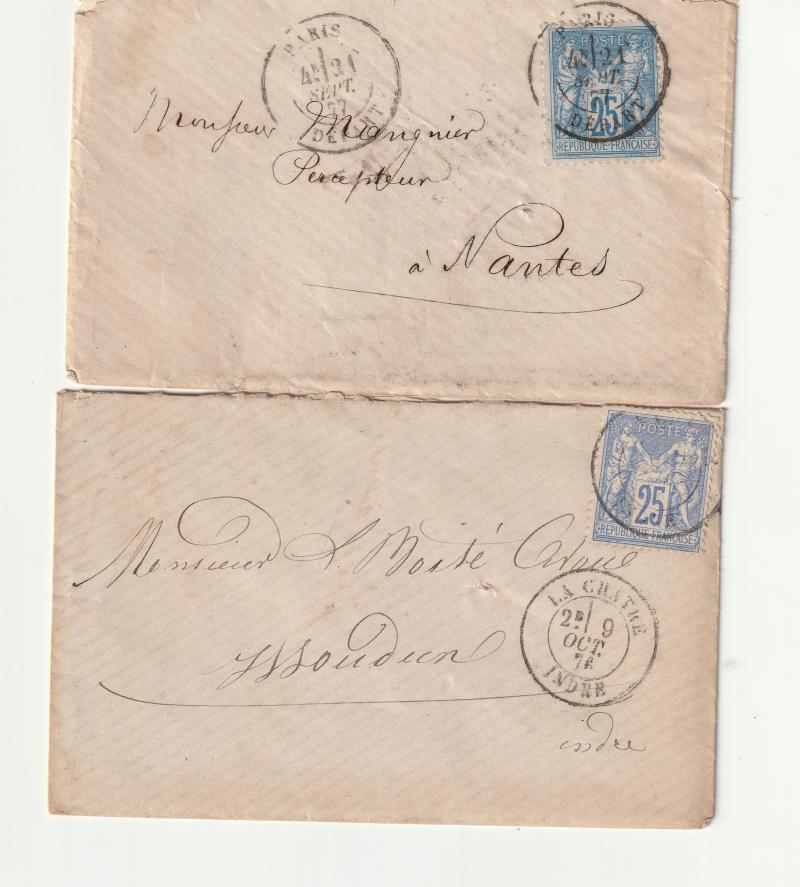 PARIS
4E 21
SEPT.
77
DEPART
PARIS
4E 21
SEPT.
77
DEPART
POSTE
25
REPUBLIQUE FRANÇAISE
Monsieur Mangnier
Percepteur
à Nantes
POSTE
25
REPUBLIQUE FRANÇAISE
Monsieur
Issoudun
LA CHATRE
2E 9
OCT.
INDRE
indre